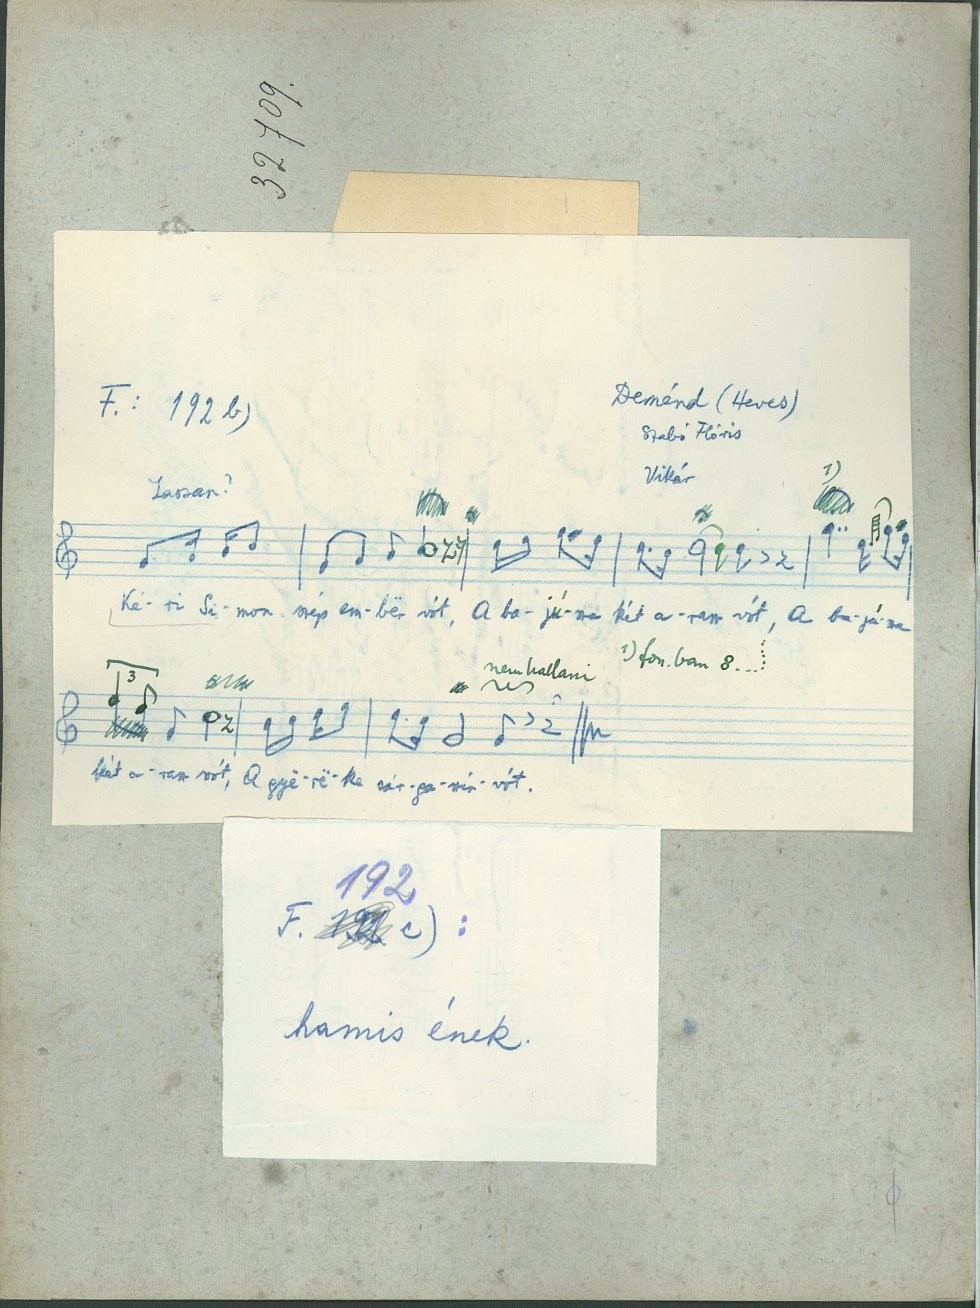 32709.
F.: 192 b)
Deménd (Heves)
Szabó Flóris
Vikár
Lassan?
1)
Ké-ri Si-mon szép em-bër vót, A ba-jú-sza két a-rasz vót, A ba-jú-sza
1) fon.ban 8....
3
nem hallani
két a-rasz vót, A gyë-rë-ke vár-ga-szír-vót.
192
F. c) :
hamis ének.